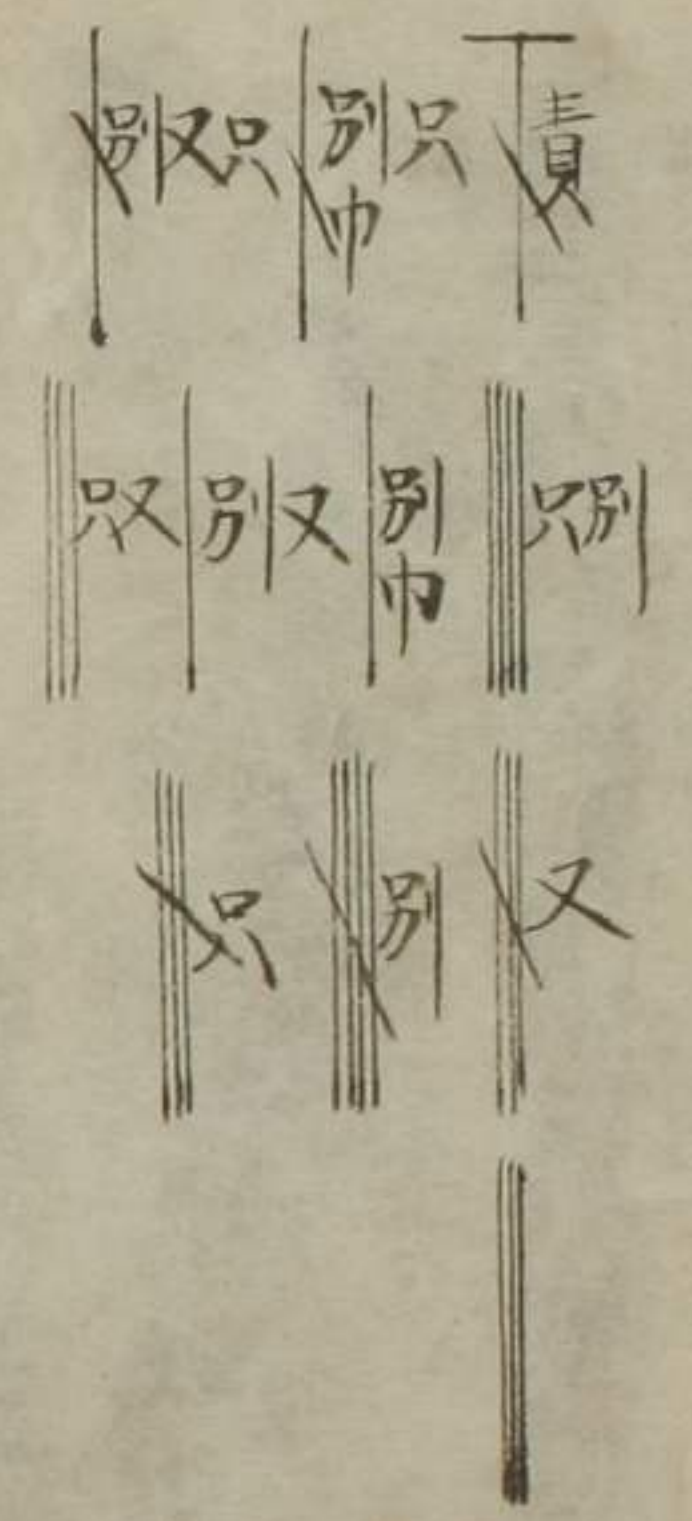 責
只
別巾
只
又
別
別
只
別巾
又
別
又
只
又
別
只